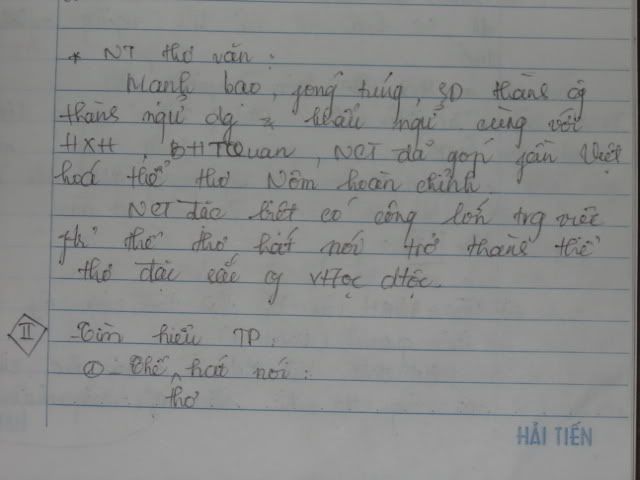 * NT thơ văn :
Mạnh bạo, phóng túng, SD thành cg
thành ngữ dg khẩu ngữ cùng với
HXH, BHTQuan, NCT đã góp phần Việt
hoá thể thơ Nôm hoàn chỉnh.
NCT đặc biệt có công lớn trg việc
thể thơ hát nói trở thành thể
thơ đặc sắc vhọc dtộc.
II - Tìm hiểu TP:
① Thể thơ hát nói :
HẢI TIẾN